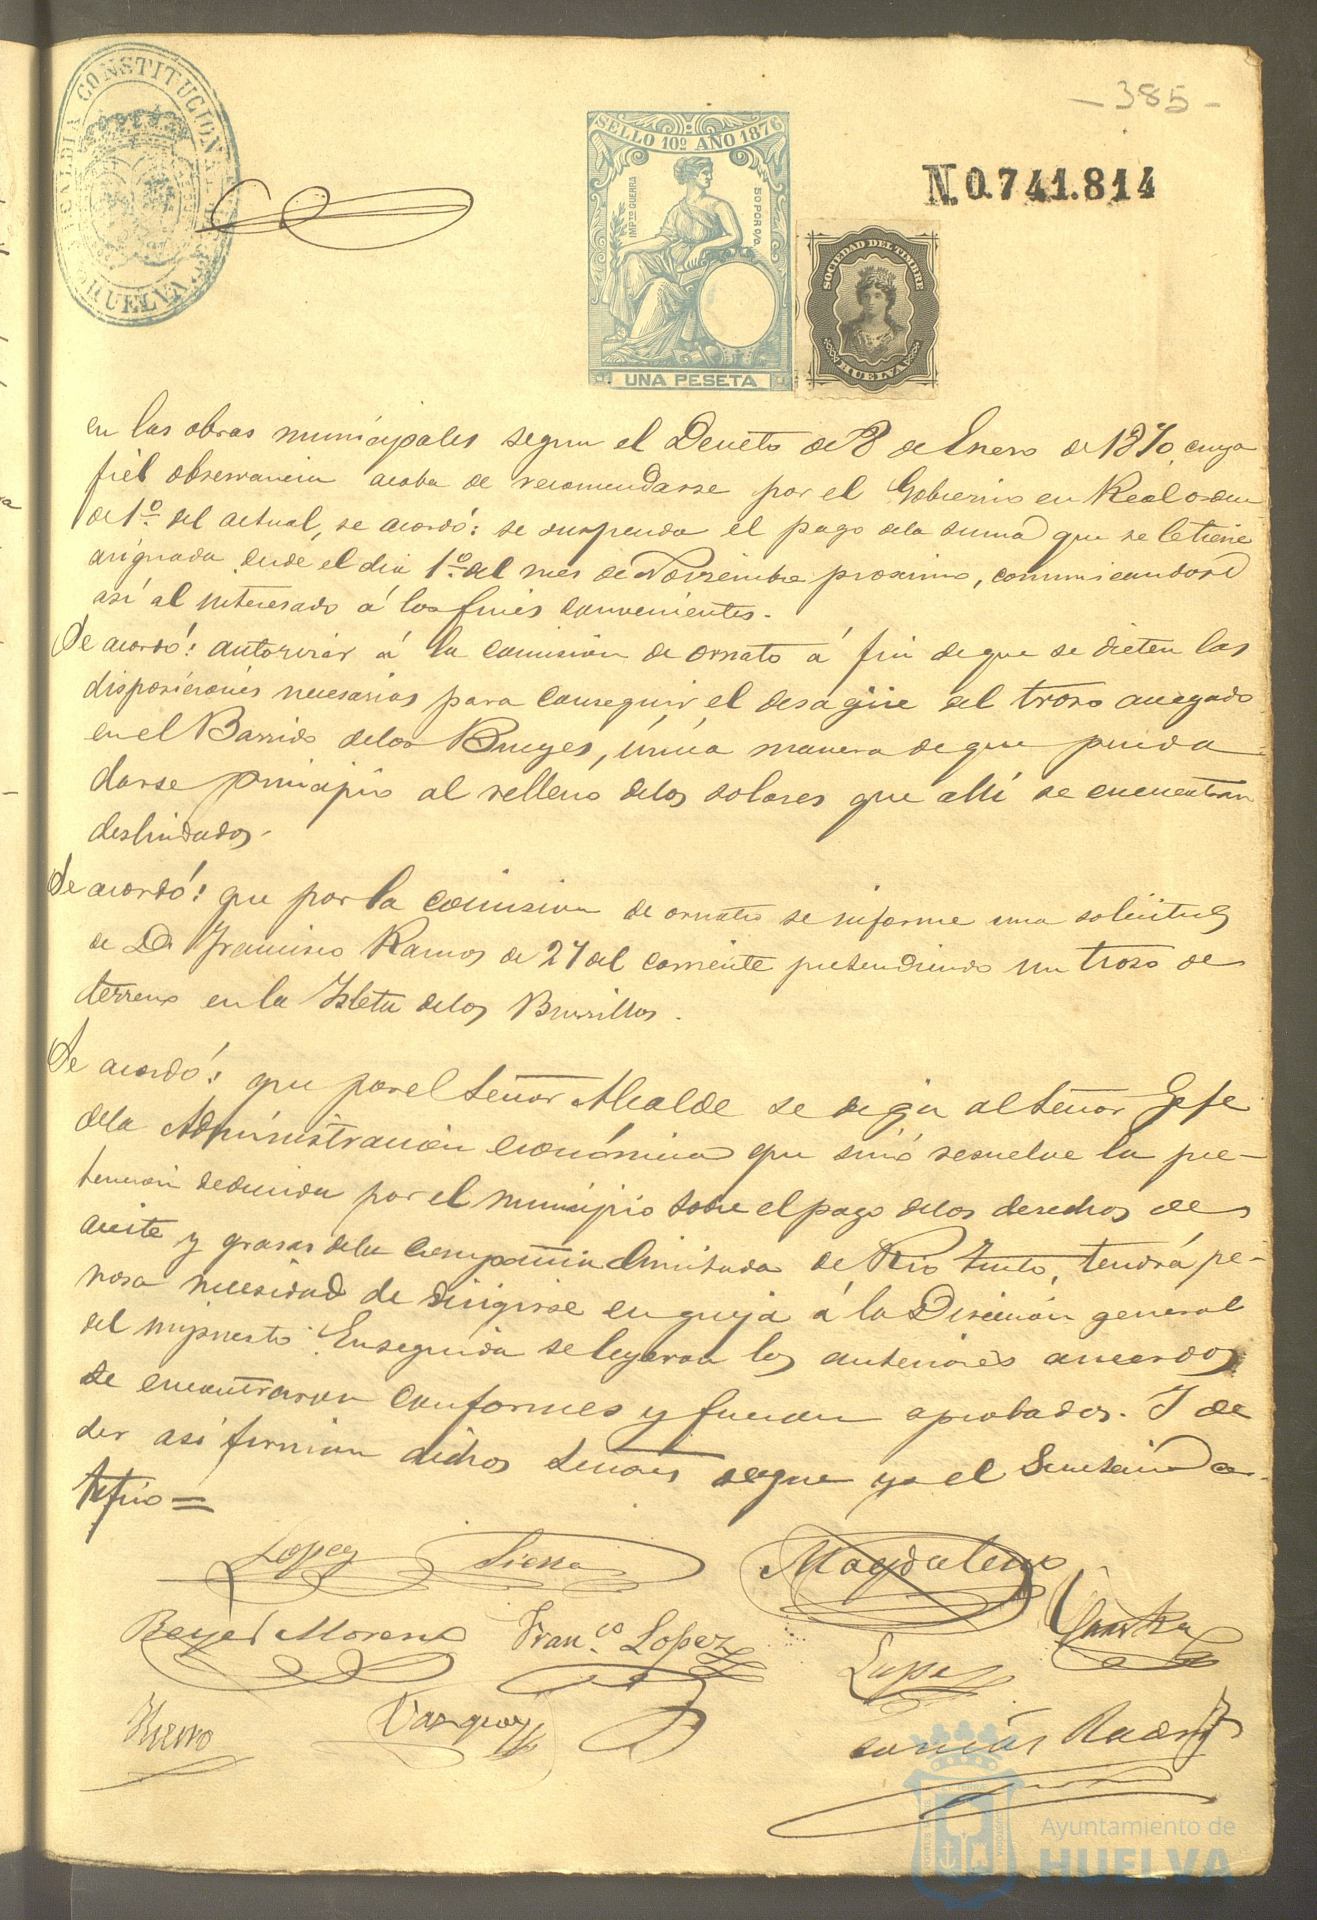 - 385 -
ALCALDIA CONSTITUCIONAL DE HUELVA
SELLO 10º AÑO 1876
IMPTO GUERRA
50 POR 0/0
UNA PESETA
N. 0.741.814
SOCIEDAD DEL TIMBRE
HUELVA
en las obras municipales segun el Decreto de 8 de Enero de 1870, cuya
fiel observancia acaba de recomendarse por el Gobierno en Real orden
de 1º del actual, se acordó: se suspenda el pago dela suma que se le tiene
asignada desde el dia 1º del mes de Noviembre proximo, comunicandose
así al interesado á los fines convenientes.
Se acordó: autorizar á la comision de ornato á fin de que se dicten las
disposiciones necesarias para conseguir el desagüe del trozo anegado
en el Barrido delos Bueyes, única manera de que pueda
darse principio al relleno delos solares que allí se encuentran
deslindados.
Se acordó: que por la comision de ornato se informe una solicitud
de Dn Francisco Ramos de 27 del corriente pretendiendo un trozo de
terreno en la Isleta delos Burrillos.
Se acordó: que por el Señor Alcalde se diga al Señor Gefe
dela Administracion económica que sinó resuelve la pre-
tension deducida por el municipio sobre el pago delos derechos de
aceite y grasas dela Compañia limitada de Rio Tinto, tendrá pe-
nosa necesidad de dirigirse en queja á la Direccion general
del impuesto. Enseguida se leyeron los anteriores acuerdos
se encontraron conformes y fueron aprobados. I de
ser así firman dichos Señores de que yo el Secretario cer-
tifico =
Lopez
Sierra
Magdaleno
Reyes Moreno
Franco Lopez
Lopez
Hierro
Vazquez
Ayuntamiento de
HUELVA